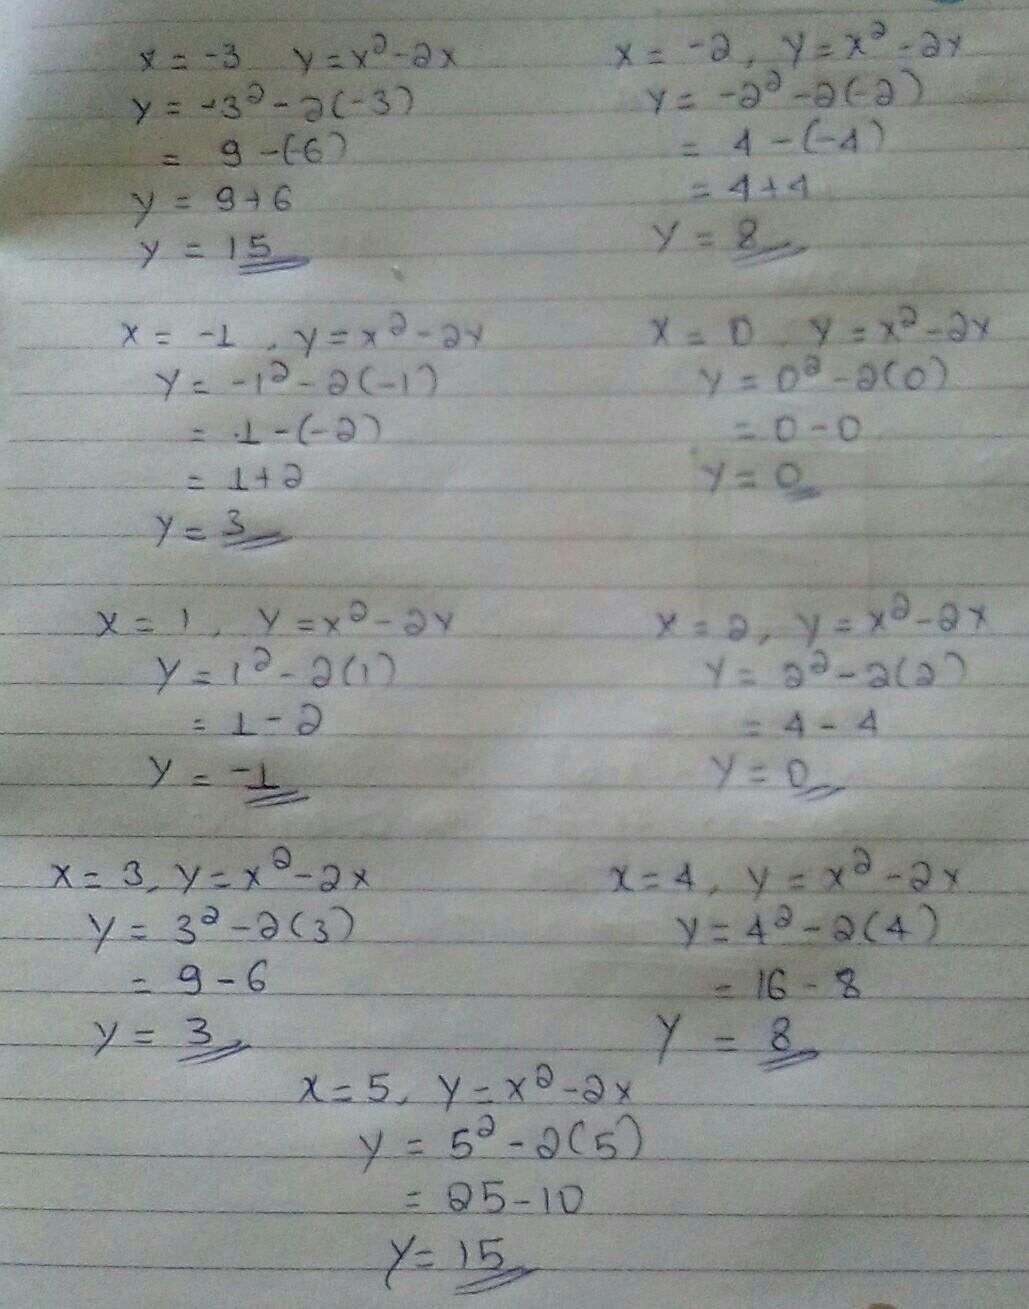 x = -3 y = x² - 2x
y = -3² - 2(-3)
= 9 - (-6)
y = 9 + 6
y = 15
x = -2, y = x² - 2x
y = -2² - 2(-2)
= 4 - (-4)
= 4 + 4
y = 8
x = -1, y = x² - 2x
y = -1² - 2(-1)
= 1 - (-2)
= 1 + 2
y = 3
x = 0, y = x² - 2x
y = 0² - 2(0)
= 0 - 0
y = 0
x = 1, y = x² - 2x
y = 1² - 2(1)
= 1 - 2
y = -1
x = 2, y = x² - 2x
y = 2² - 2(2)
= 4 - 4
y = 0
x = 3, y = x² - 2x
y = 3² - 2(3)
= 9 - 6
y = 3
x = 4, y = x² - 2x
y = 4² - 2(4)
= 16 - 8
y = 8
x = 5, y = x² - 2x
y = 5² - 2(5)
= 25 - 10
y = 15